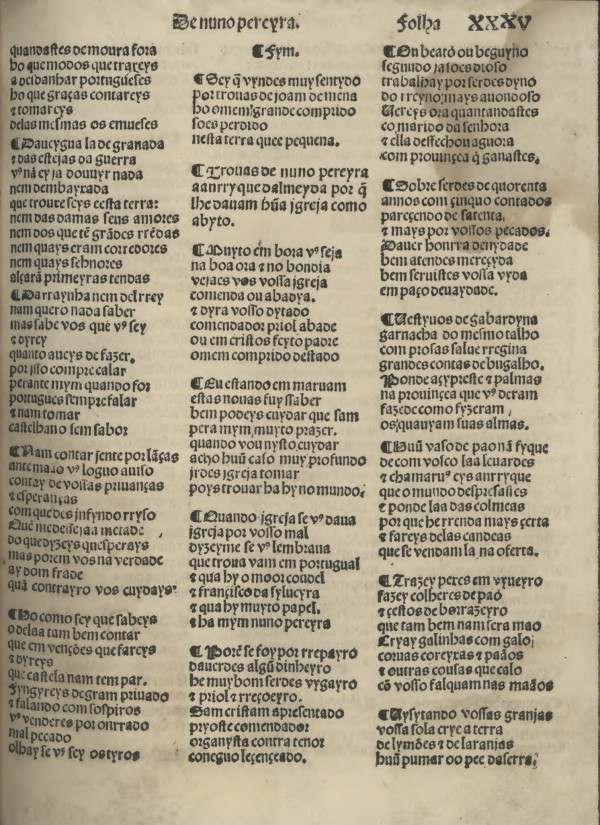 De nuno pereyra.
Folha XXXV
quandastes de moura fora
ho que modos que trazeys
a deibanhar portugueses
ho que graças contareys
& tomareys
delas mesmas os emueses
¶ Daueygua la de granada
& das estejas da guerra
vꝰ nã ey ja douuyr nada
nem dembayxada
que trouuesseys desta terra:
nem das damas seus amores
nem dos que tẽ grãdes rrẽdas
nem quays eram corredores
nem quays senhores
alçarã primeyras tendas
¶ Da rraynha nem del rrey
nam quero nada saber
mas sabe vos que vꝰ sey
& dyrey
quanto aueys de fazer.
por isso compre calar
perante mym quando for
portugues sempre falar
& nam tomar
castelhano sem sabor
¶ Nam contar jente por lãças
ante mão vꝰ loguo auiso
contay de vossas priuanças
& esperanças
com que des infyndo rryso
Que me desseja metade
do que dyzeys quesperays
mas porem vos na verdade
ay dom frade
quã contrayro vos cuydays:
¶ Ho como sey que sabeys
o de laa tam bem contar
que em venções que fareys
& dyreys
que castela nam tem par.
Fyngyreys de gram priuado
& falando com sospiros
vꝰ venderes por onrrado
mal pecado
olhay se vꝰ sey os tyros
¶ Fym.
¶ Sey q̃ vyndes muy sentydo
por trouas de joam de mena
ho omem grande comprido
soes perdido
nesta terra quee pequena.
¶ Trouas de nuno pereyra
a anrryque dalmeyda por q̃
lhe dauam hũa jgreja como
abyto.
¶ Muyto ẽm bora vꝰ seja
na boa ora & no bondia
vejaes vos vossa jgreja
comenda ou abadya.
& dyra vosso dytado
comendador priol abade
ou em cristos feyto padre
omem comprido destado
¶ Eu estando em maruam
estas nouas fuy ssaber
bem podeys cuydar que sam
pera mym, muyto prazer.
quando vou nysto, cuydar
acho huũ caso muy profundo
jrdes jgreja tomar
poys trouar ha hy no mundo.
¶ Quando jgreja se vꝰ daua
jgreja por vosso mal
dyzeyme se vꝰ lembraua
que troua vam em portugual
& qua hy o moor coudel
& francisco da sylueyra
& qua hy muyto papel.
& ha mym nuno pereyra
¶ Porẽ se foy por rrepayro
dauerdes algũ dinheyro
he muy bom serdes vygayro
& priol & rreçoeyro.
Sam cristam apresentado
pryoste comendador
organysta contra tenor
coneguo leçençeado.
¶ Ou beato ou beguyno
segundo ja soes dioso
trabalhay por serdes dyno
do rreyno: mays auondoso
Uereys ora quantandastes
co marido da senhora
& ella desfechou aguora
com prouinçça q̃ ganastes.
¶ Sobre serdes de quorenta
annos com çinquo contados
pareçendo de satenta.
& mays por vossos pecados:
Dauer honrra denydade
bem atendes merçeyda
bem seruistes vossa vyda
em paço de vaydade.
¶ Uestyuos de gabardyna
garnacha do mesmo talho
com prosas salue rregina
grandes contas de bugalho.
Ponde açypreste & palmas
na prouinçca que vꝰ deram
fazede como fyzeram,
os, quauyam suas almas.
¶ Huũ vaso de pao nã fyque
de com vosco laa leuardes
& chamaruꝰ eys anrryque
que o mundo despresastes
& ponde laa das colmeas
por que he rrenda mays çerta
& fareys delas candeas
que se vendam la na oferta.
¶ Trazey peres em vyueyro
fazey colheres de pao
& çestos de borrazeyro
que tam bem nam sera mao
Cryay galinhas com galo:
coruas coreyxas & paãos
& outras cousas que calo
cõ vosso falquam nas maãos
¶ Uysytando vossas granjas
vossa sola crye a terra
de lymões & de laranjas
huũ pumar oo pee da serra.